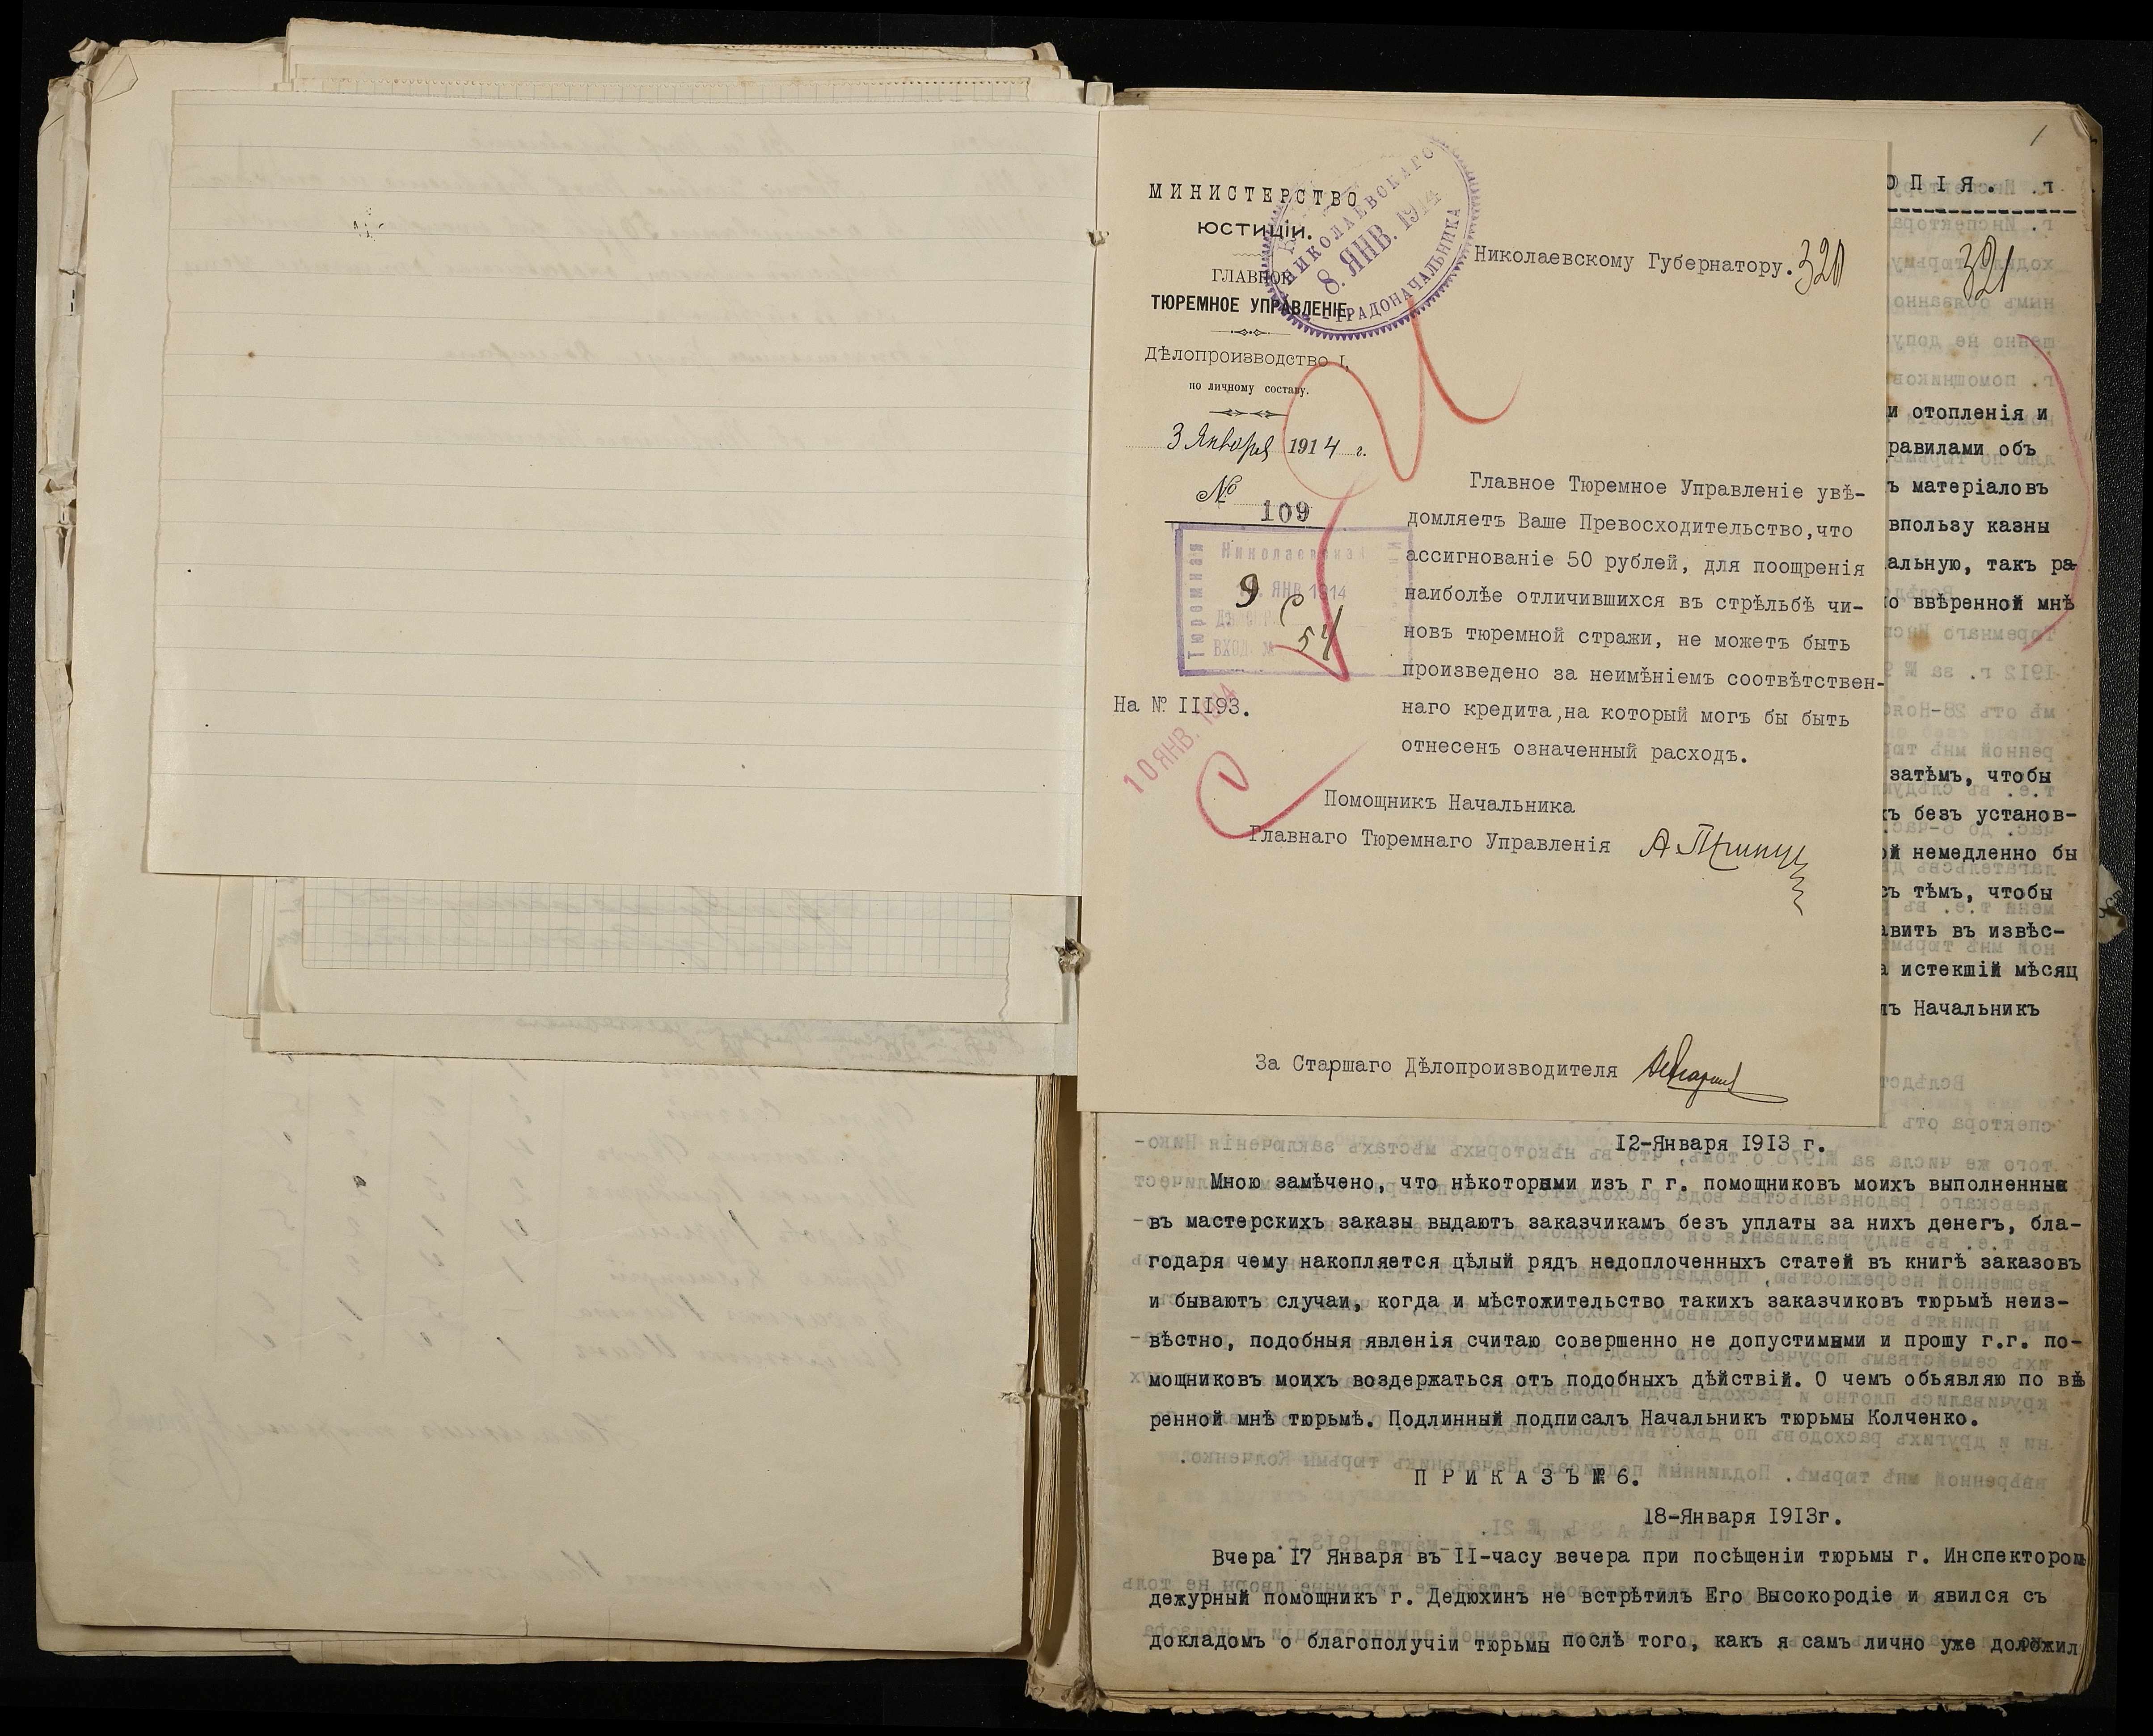 МИНИСТЕРСТВО
ЮСТИЦІИ.
ГЛАВНОЕ
ТЮРЕМНОЕ УПРАВЛЕНІЕ
Дѣлопроизводство I,
по личному составу.
3 Января 1914 г.
№ 109
НИКОЛАЕВСКАГО
8. ЯНВ. 1914
ГРАДОНАЧАЛЬНИКА
Николаевскому Губернатору.
320
Николаевская
Тюремная
9
ЯНВ 1914
ВХОД. №
54
На № III93.
10 ЯНВ. 1914
Главное Тюремное Управленіе увѣ-
домляетъ Ваше Превосходительство,что
ассигнованіе 50 рублей, для поощренія
наиболѣе отличившихся въ стрѣльбѣ чи-
новъ тюремной стражи, не можетъ быть
произведено за неимѣніемъ соотвѣтствен-
наго кредита,на который могъ бы быть
отнесенъ означенный расходъ.
Помощникъ Начальника
Главнаго Тюремнаго Управленія
За Старшаго Дѣлопроизводителя
1
ОПІЯ.
321
и отопленія и
равилами объ
ъ матеріаловъ
впользу казны
альную, такъ ра-
о ввѣренной мнѣ
затѣмъ, чтобы
ъ безъ установ-
ой немедленно бы
съ тѣмъ, чтобы
авить въ извѣс-
а истекшій мѣсяц
ъ Начальникъ
12-Января 1913 г.
Мною замѣчено, что нѣкоторыми изъ г г. помощниковъ моихъ выполненные
въ мастерскихъ заказы выдаютъ заказчикамъ безъ уплаты за нихъ денегъ, бла-
годаря чему накопляется цѣлый рядъ недоплоченныхъ статей въ книгѣ заказовъ
и бываютъ случаи, когда и мѣстожительство такихъ заказчиковъ тюрьмѣ неиз-
вѣстно, подобныя явленія считаю совершенно не допустимыми и прошу г.г. по-
мощниковъ моихъ воздержаться отъ подобныхъ дѣйствій. О чемъ обьявляю по ввѣ
ренной мнѣ тюрьмѣ. Подлинный подписалъ Начальникъ тюрьмы Колченко.
П Р И К А З Ъ № 6.
18-Января 1913г.
Вчера 17 Января въ II-часу вечера при посѣщеніи тюрьмы г. Инспекторомъ
дежурный помощникъ г. Дедюхинъ не встрѣтилъ Его Высокородіе и явился съ
докладомъ о благополучіи тюрьмы послѣ того, какъ я самъ лично уже доложил